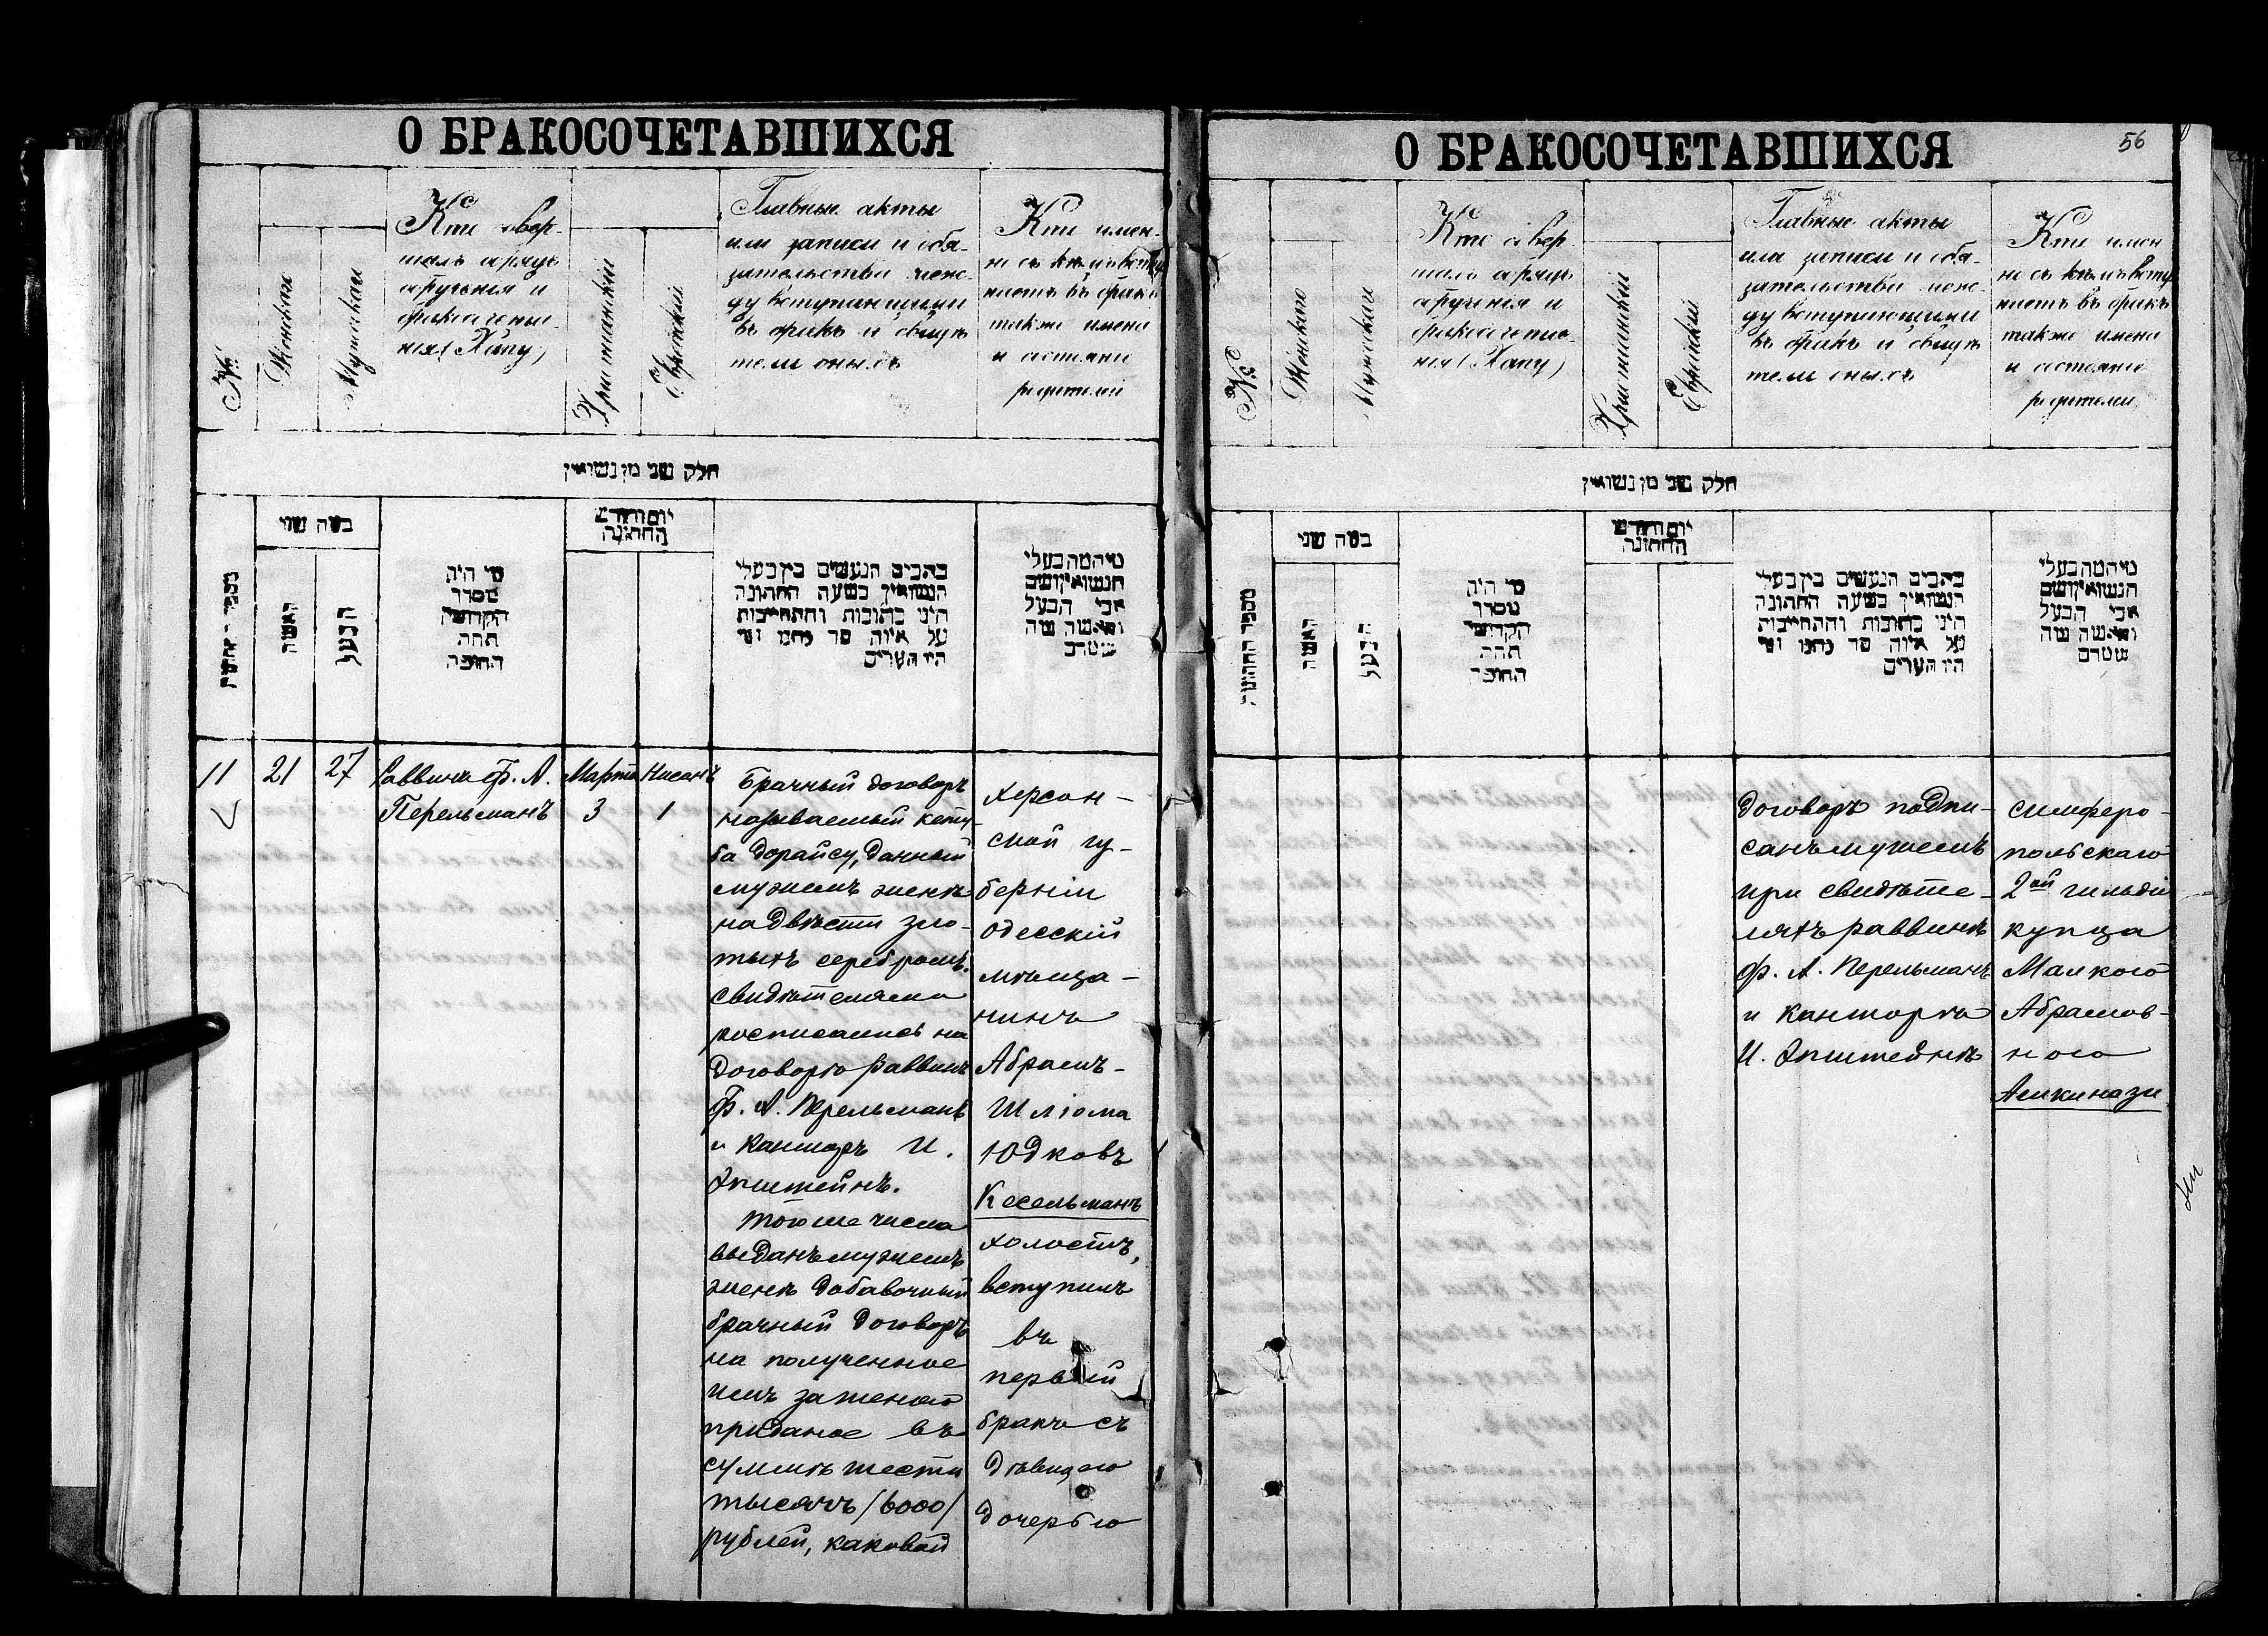 О БРАКОСОЧЕТАВШИХСЯ
№
Женская
Мужская
Кто совер-
шалъ обрядъ
обрученія и
бракосочета-
нія (Хапу)
Христіанскій
Еврейскій
Главные акты
или записи и обя-
зательства меж-
ду вступившими
въ бракъ и свидѣ
тели оныхъ
Кто имен-
но съ кѣмъ всту
паетъ въ бракъ
также имена
и состояніе
родителей
חלק שני מן נשואין
מספר
בטה שני
האשה
הבעל
מי היה
מסדר
הקדושי
תחת
החופה
יום וחדש
החתונה
כתבים הנעשים בין בעלי
הנשואין בשעה החתונה
היני כתובות והתחייבות
על איזה סך נתנו ומי
היו העדים
מיהמה בעלי
הנשואין ושם
אבי הבעל
והאשה
11 21 27 Раввинъ Ф. А.
Перельманъ
Марта 3
Нисанъ 1
Брачный договоръ
называемый кету-
ба дорайсу, данный
мужемъ женѣ
на двѣсти зло-
тыхъ серебромъ.
Свидѣтелями
росписались на
договорѣ раввинъ
Ф. А. Перельманъ
и канторъ И.
Эпштейнъ.
Тогоже числа
выданъ мужемъ
женѣ добавочный
брачный договоръ
на полученное
имъ за женой
приданое въ
суммѣ шести
тысячъ /6000/
рублей, каковой
Херсон-
ской гу-
берніи
Одесскій
мѣща-
нинъ
Абрамъ-
Шліома
Юдковъ
Кесельманъ
холостъ,
вступилъ
въ
первый
бракъ съ
дѣвицею
дочерью
О БРАКОСОЧЕТАВШИХСЯ
56
№
Женская
Мужская
Кто совер
шалъ обрядъ
обрученія и
бракосочета-
нія (Хапу)
Христіанскій
Еврейскій
Главные акты
или записи и обя-
зательства меж-
ду вступающими
въ бракъ и свидѣ
тели оныхъ
Кто имен
но съ кѣмъ всту
паетъ въ бракъ
также имена
и состояніе
родителей
חלק שני מן נשואין
מספר החתונה
בטה שני
האשה
הבעל
מי היה
מסדר
הקדושי
תחת
החופה
יום וחדש
החתונה
כתבים הנעשים בין בעלי
הנשואין בשעה החתונה
היני כתובות והתחייבות
על איזה סך נתנו ומי
היו העדים
מיהמה בעלי
הנשואין ושם
אבי הבעל
והאשה
договоръ подпи-
санъ мужемъ
при свидѣте-
ляхъ раввинѣ
Ф. А. Перельманъ
и канторѣ
И. Эпштейнъ
симферо-
польскаго
2ой гильдіи
купца
Малкого
Абрамов-
ного
Ашкинази